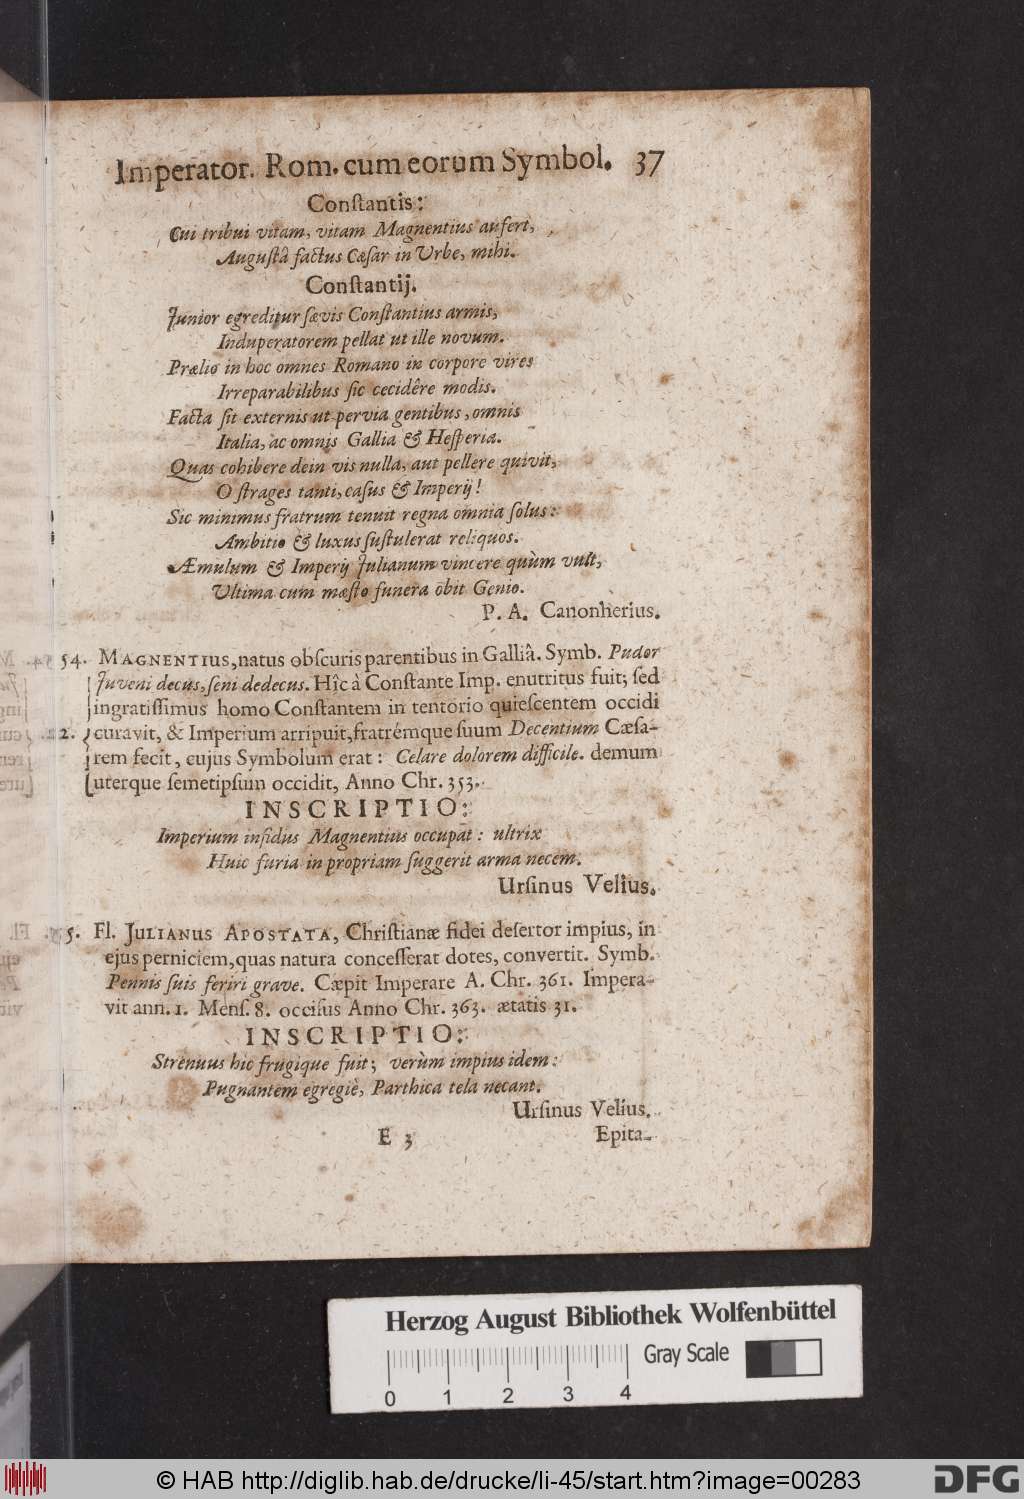 Imperator. Rom. cum eorum Symbol. 37
Conſtantis:
Cui tribui vitam, vitam Magnentius aufert,
Auguſtâ factus Cæſar in Urbe, mihi.
Conſtantij.
Junior egreditur ſævis Conſtantius armis,
Induperatorem pellat ut ille novum.
Prælio in hoc omnes Romano in corpore vires
Irreparabilibus ſic cecidêre modis.
Facta ſit externis ut pervia gentibus, omnis
Italia, ac omnis Gallia & Heſperia.
Quas cohibere dein vis nulla, aut pellere quivit,
O ſtrages tanti, caſus & Imperij!
Sic minimus fratrum tenuit regna omnia ſolus:
Ambitio & luxus ſuſtulerat reliquos.
Æmulum & Imperij Julianum vincere quùm vult,
Ultima cum mæſto funera obit Genio.
P. A. Canonherius.
54. MAGNENTIUS, natus obſcuris parentibus in Galliâ. Symb. Pudor
Juveni decus, ſeni dedecus. Hîc à Conſtante Imp. enutritus fuit; ſed
ingratiſſimus homo Conſtantem in tentorio quieſcentem occidi
22. curavit, & Imperium arripuit, fratrémque ſuum Decentium Cæſa-
rem fecit, cujus Symbolum erat: Celare dolorem difficile. demum
uterque ſemetipſum occidit, Anno Chr. 353.
INSCRIPTIO:
Imperium inſidus Magnentius occupat: ultrix
Huic furia in propriam ſuggerit arma necem.
Urſinus Velius.
55. Fl. JULIANUS APOSTATA, Chriſtianæ fidei deſertor impius, in
ejus perniciem, quas natura conceſſerat dotes, convertit. Symb.
Pennis ſuis feriri grave. Cæpit Imperare A. Chr. 361. Impera-
vit ann. 1. Menſ. 8. occiſus Anno Chr. 363. ætatis 31.
INSCRIPTIO:
Strenuus hic frugique fuit; verùm impius idem:
Pugnantem egregiè, Parthica tela necant.
Urſinus Velius.
E 3 Epita-
Herzog August Bibliothek Wolfenbüttel
Gray Scale
0 1 2 3 4
© HAB http://diglib.hab.de/drucke/li-45/start.htm?image=00283
DFG